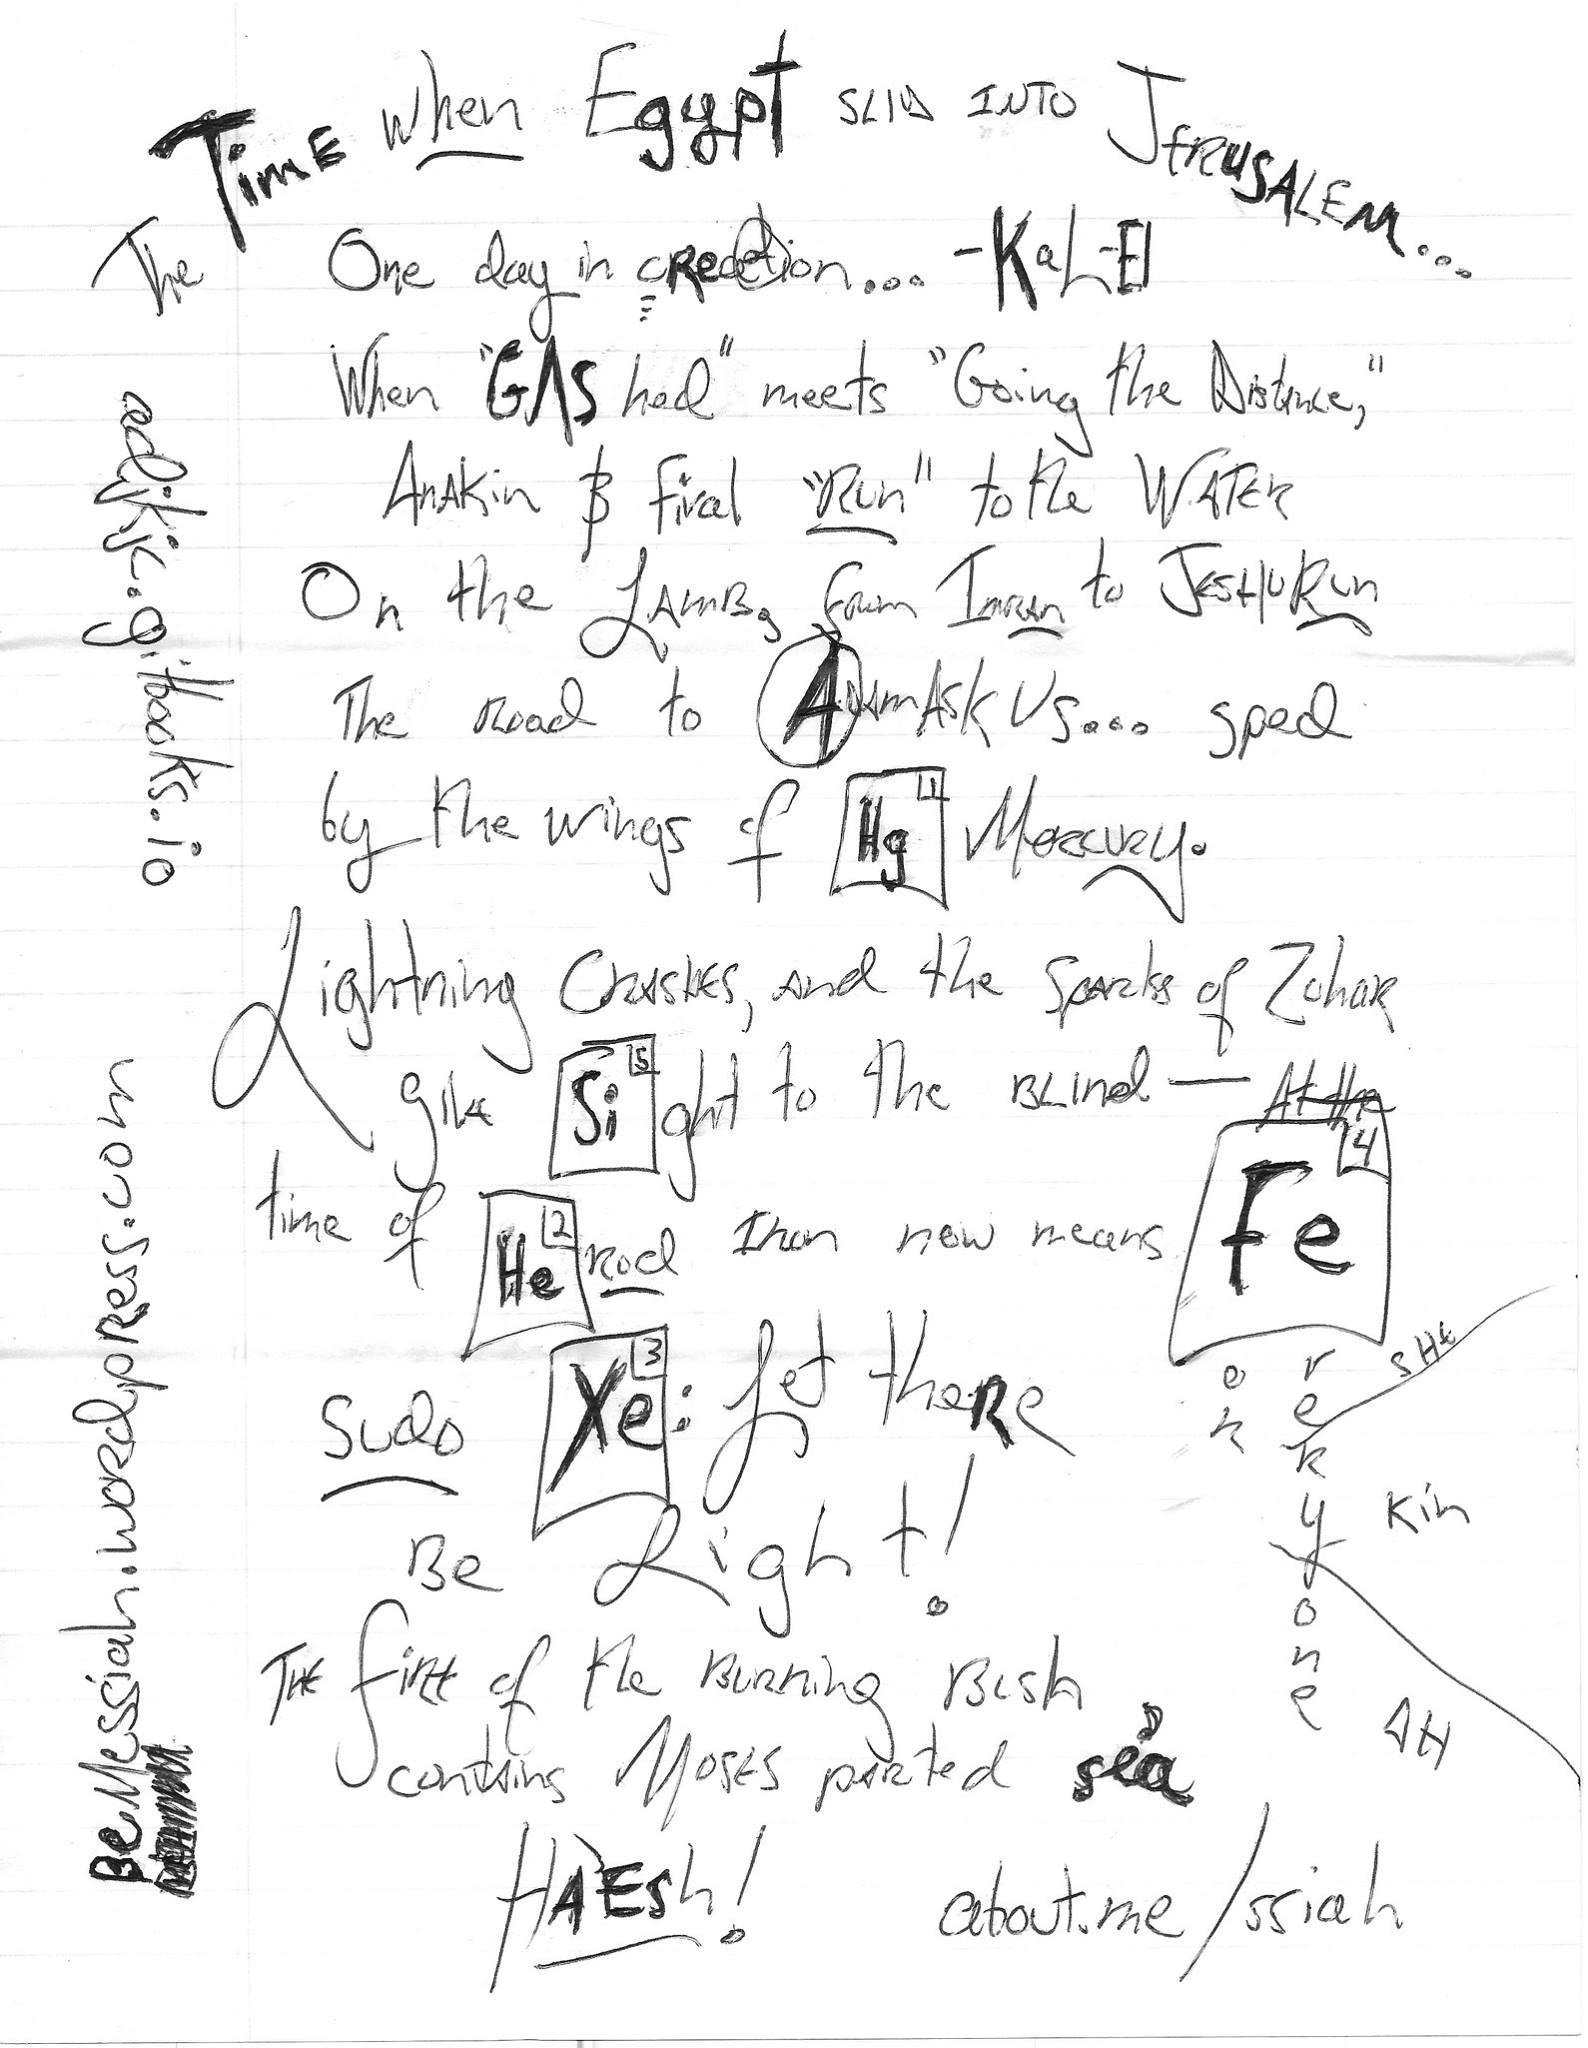 The TimE when Egypt SLID INTO JERUSALEM...
One day in cREation... -KaL-El
When "GAShed" meets "Going the Distance,"
AnAKin & final "Run" to the WATER
On the LAMB, from Imran to JESHURun
The road to ADAMASK US... sped
by the wings of Hg 1 Mercury.
Lightning CRASHES, and the sparks of Zohar
give Si 5 ght to the BLIND — At the
time of He 2 rod Iron now means Fe 4
or
reKyone
SHE
Kin
AH
SUDO Xe 3: Let theRe
Be Light!
The fire of the Burning Bush
contains Moses parted sea
HA'ESh!
about.me/ssiah
adjkjc.gitbooks.io
BeMessiah.wordpRess.com